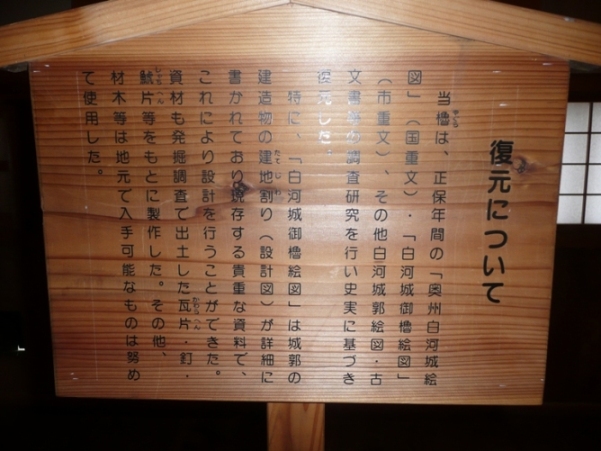 復元について
当櫓は、正保年間の「奥州白河城絵
図」（国重文）・「白河城御櫓絵図」
（市重文）、その他白河城郭絵図・古
文書等の調査研究を行い史実に基づき
復元した。
特に、「白河城御櫓絵図」は城郭の
建造物の建地割り（設計図）が詳細に
書かれており現存する貴重な資料で、
これにより設計を行うことができた。
資材も発掘調査で出土した瓦片・釘・
鯱片等をもとに製作した。その他、
材木等は地元で入手可能なものは努め
て使用した。